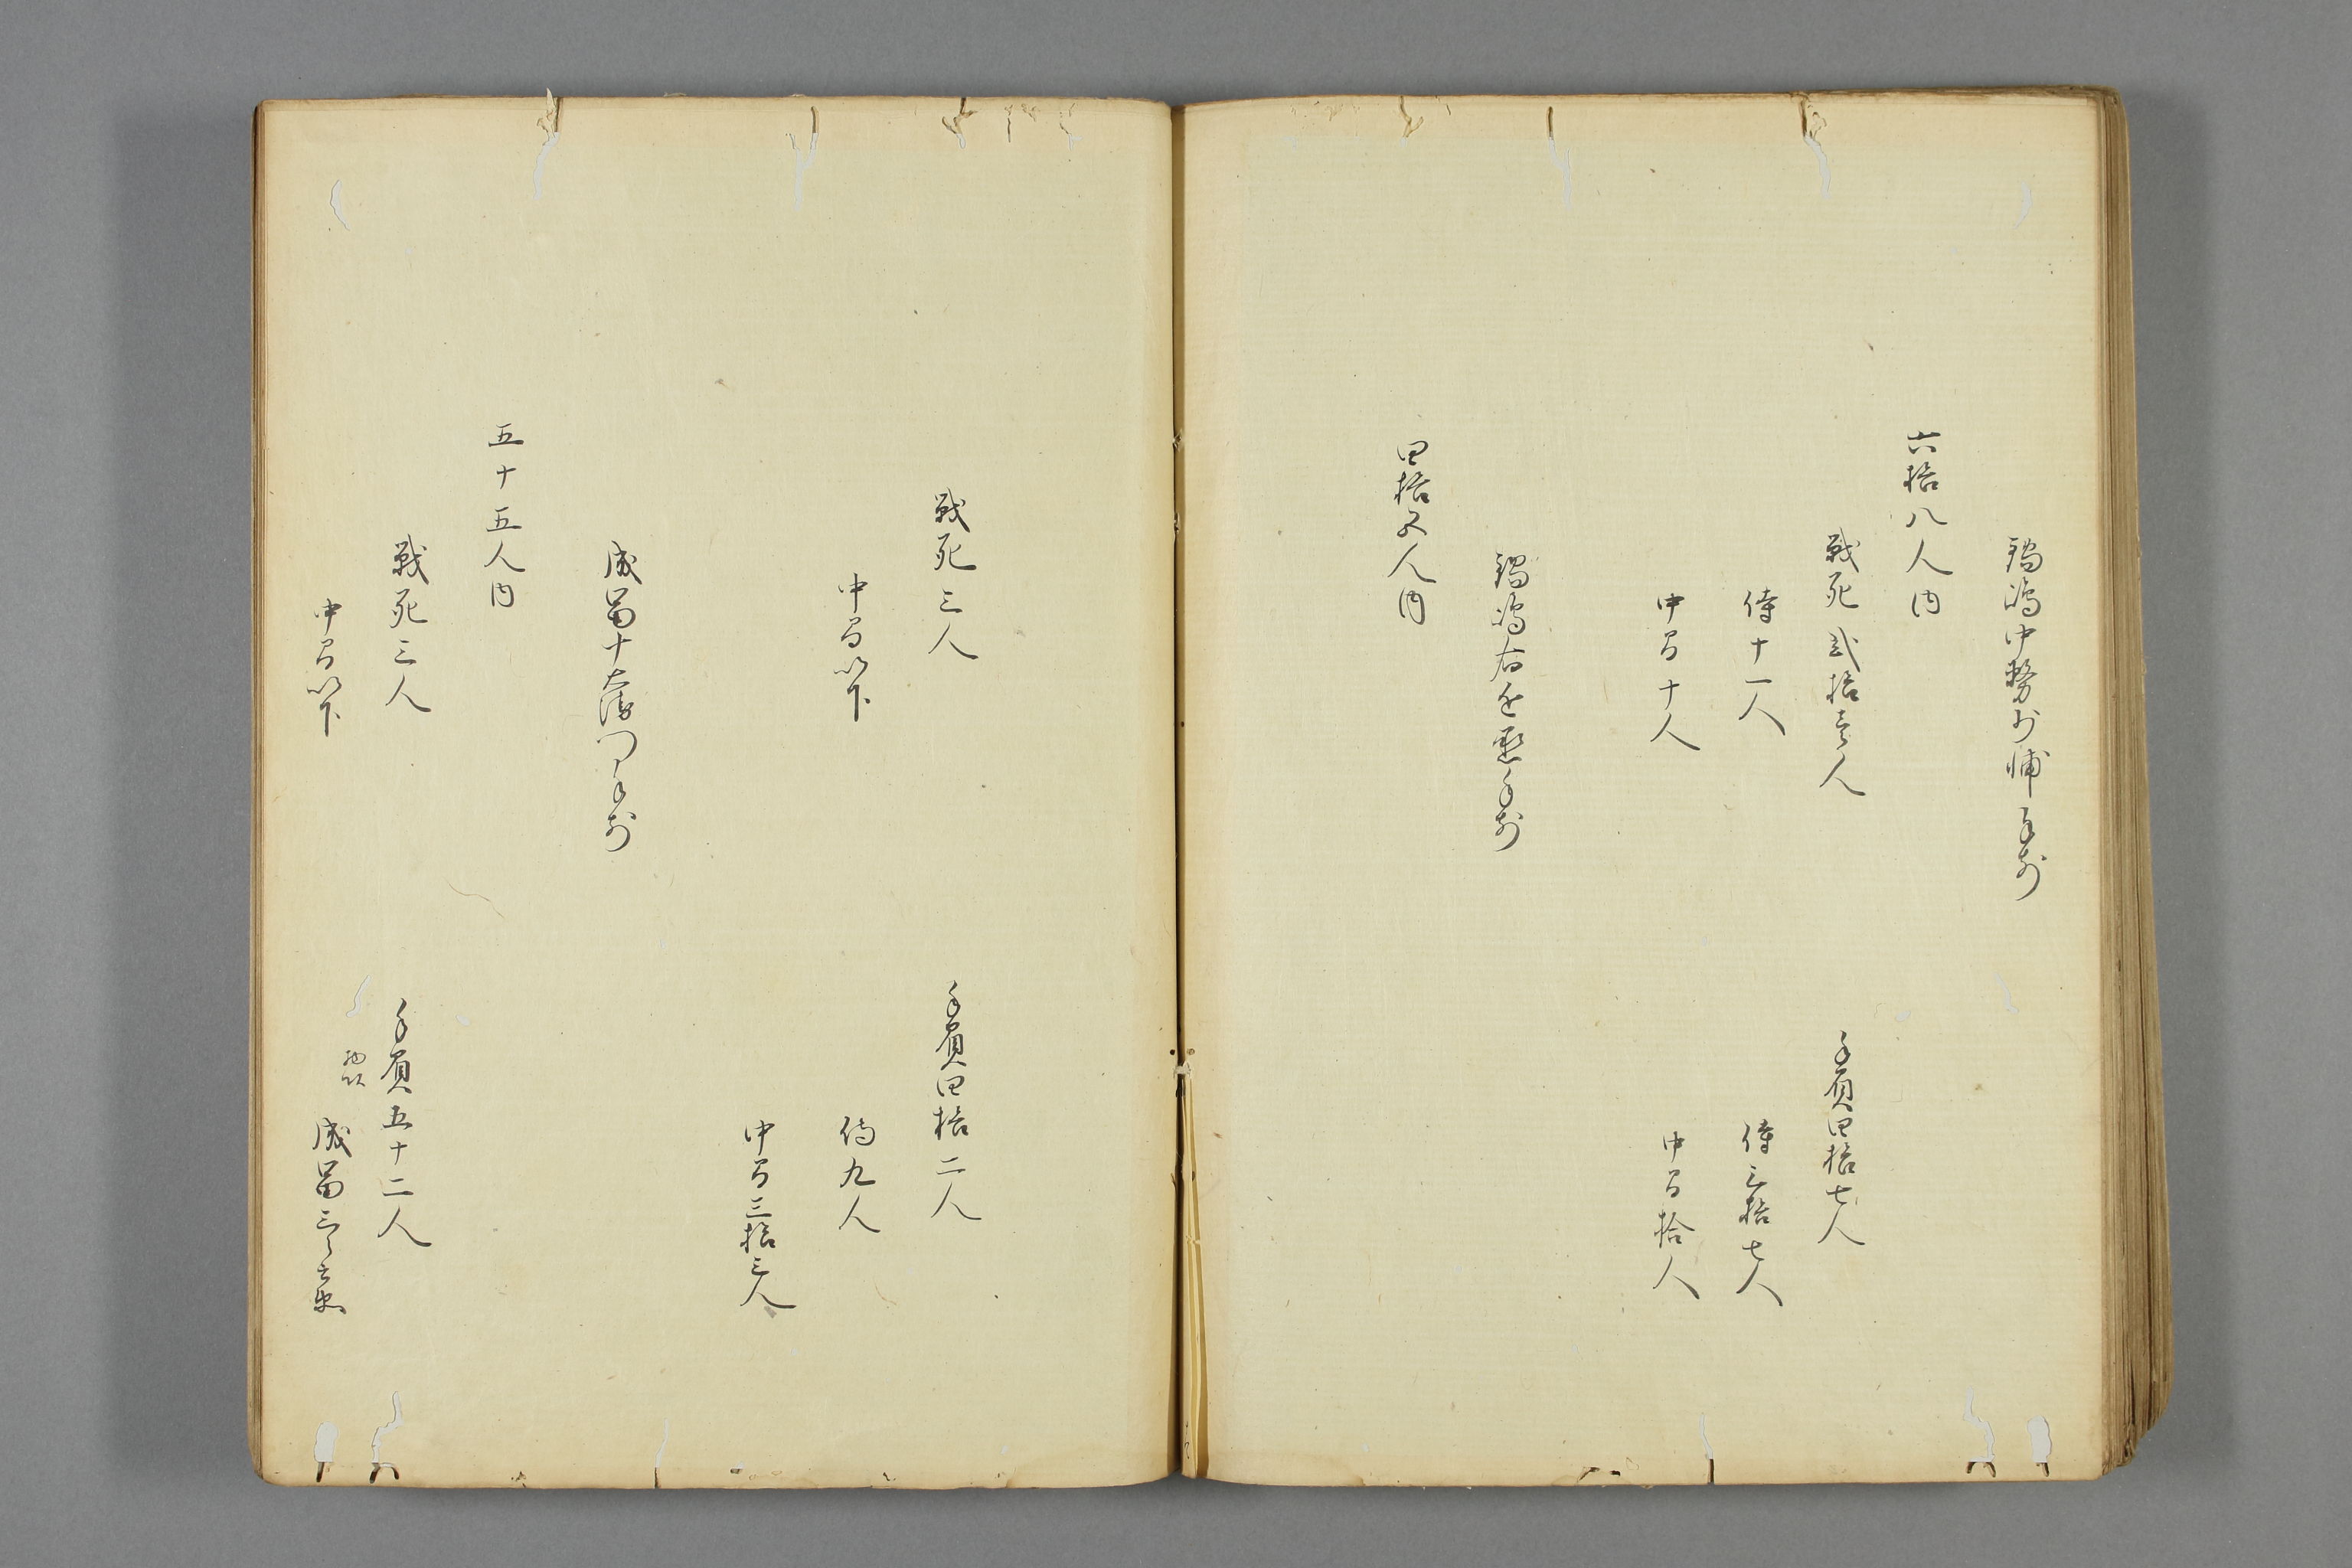 鍋嶋中務少輔手前
六拾八人内
戦死弐拾壱人
手負四拾七人
侍十一人
侍三拾七人
中間十人
中間拾人
鍋嶋右近丞手前
四拾五人内
戦死三人
手負四拾二人
中間以下
侍九人
中間三拾三人
成冨十右衛門手前
五十五人内
戦死三人
手負五十二人
物頭
中間以下
成冨